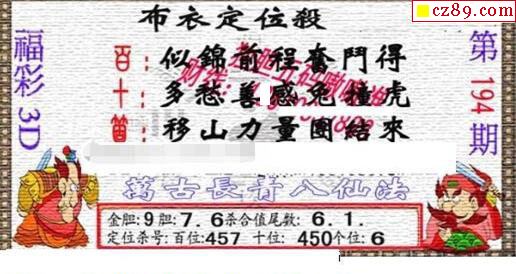 cz89.com
布衣定位殺
福彩3D
第194期
百：似錦前程奮鬥得
十：多愁善感兔撞虎
個：移山力量團結來
萬古長青八仙法
金胆:9胆:7.6杀合值尾数:6.1.
定位杀号:百位:457 十位:450个位:6